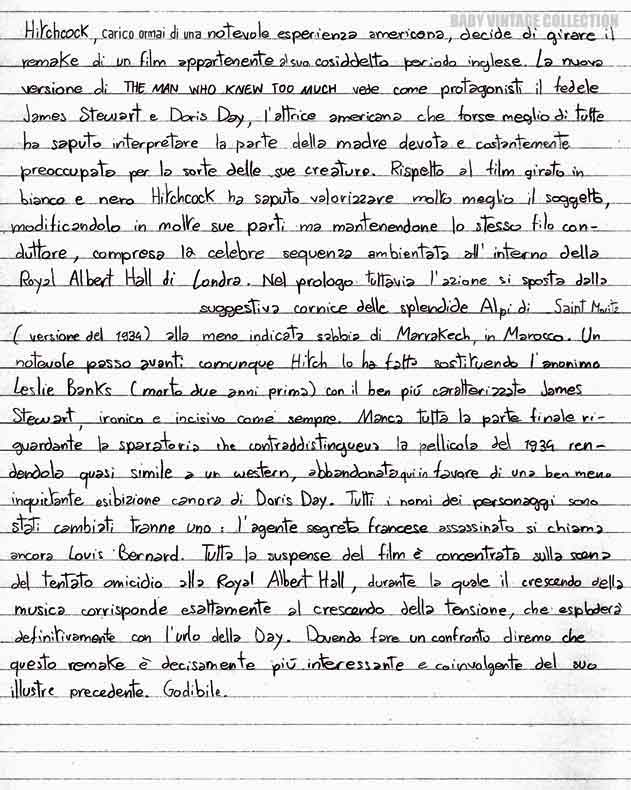 BABY VINTAGE COLLECTION
Hitchcock, carico ormai di una notevole esperienza americana, decide di girare il
remake di un film appartenente al suo cosiddetto periodo inglese. La nuova
versione di THE MAN WHO KNEW TOO MUCH vede come protagonisti il fedele
James Stewart e Doris Day, l'attrice americana che forse meglio di tutte
ha saputo interpretare la parte della madre devota e costantemente
preoccupata per la sorte delle sue creature. Rispetto al film girato in
bianco e nero Hitchcock ha saputo valorizzare molto meglio il soggetto,
modificandolo in molte sue parti ma mantenendone lo stesso filo con-
duttore, compresa la celebre sequenza ambientata all'interno della
Royal Albert Hall di Londra. Nel prologo tuttavia l'azione si sposta dalla
suggestiva cornice delle splendide Alpi di Saint Moritz
(versione del 1934) alla meno indicata sabbia di Marrakech, in Marocco. Un
notevole passo avanti comunque Hitch lo ha fatto sostituendo l'anonimo
Leslie Banks (morto due anni prima) con il ben più caratterizzato James
Stewart, ironico e incisivo come sempre. Manca tutta la parte finale ri-
guardante la sparatoria che contraddistingueva la pellicola del 1934 ren-
dendola quasi simile a un western, abbandonata qui in favore di una ben meno
inquietante esibizione canora di Doris Day. Tutti i nomi dei personaggi sono
stati cambiati tranne uno: l'agente segreto francese assassinato si chiama
ancora Louis Bernard. Tutta la suspense del film è concentrata sulla scena
del tentato omicidio alla Royal Albert Hall, durante la quale il crescendo della
musica corrisponde esattamente al crescendo della tensione, che esploderà
definitivamente con l'urlo della Day. Dovendo fare un confronto diremo che
questo remake è decisamente più interessante e coinvolgente del suo
illustre precedente. Godibile.